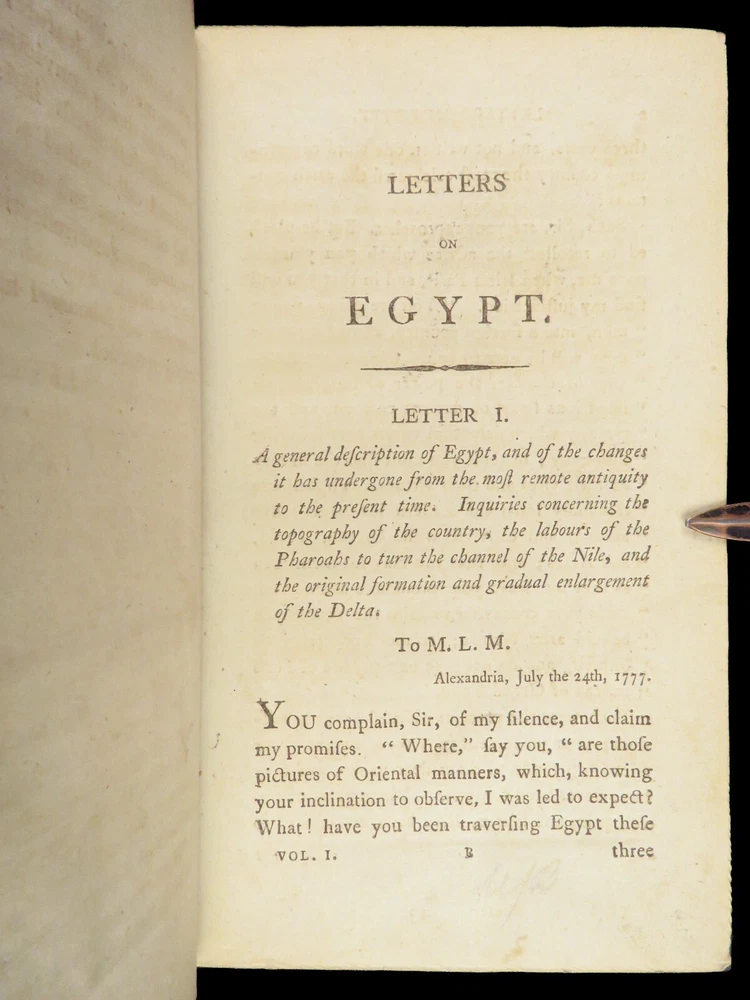 LETTERS
ON
EGYPT.
LETTER I.
A general deſcription of Egypt, and of the changes
it has undergone from the moſt remote antiquity
to the preſent time. Inquiries concerning the
topography of the country, the labours of the
Pharoahs to turn the channel of the Nile, and
the original formation and gradual enlargement
of the Delta.
To M. L. M.
Alexandria, July the 24th, 1777.
YOU complain, Sir, of my ſilence, and claim
my promiſes. “ Where,” ſay you, “ are thoſe
pictures of Oriental manners, which, knowing
your inclination to obſerve, I was led to expect?
What! have you been traverſing Egypt theſe
VOL. I. B three